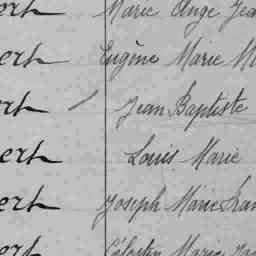 ert Marie Ange Jea
ert Eugène Marie M
ert / Jean Baptiste
ert Louis Marie
ert Joseph Marie Fran
ert Célestin Marie Jo